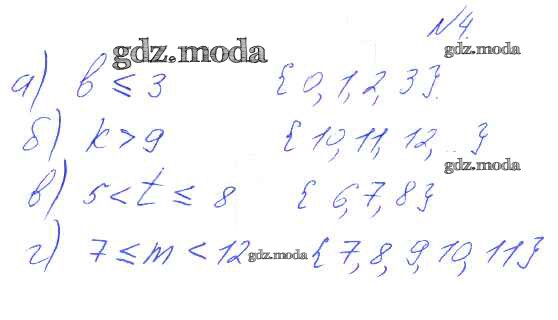 №4.
gdz.moda gdz.moda
а) b ≤ 3 {0, 1, 2, 3}.
б) k > 9 {10, 11, 12, ...}
gdz.moda
в) 5 < t ≤ 8 {6, 7, 8}
г) 7 ≤ m < 12 gdz.moda {7, 8, 9, 10, 11}